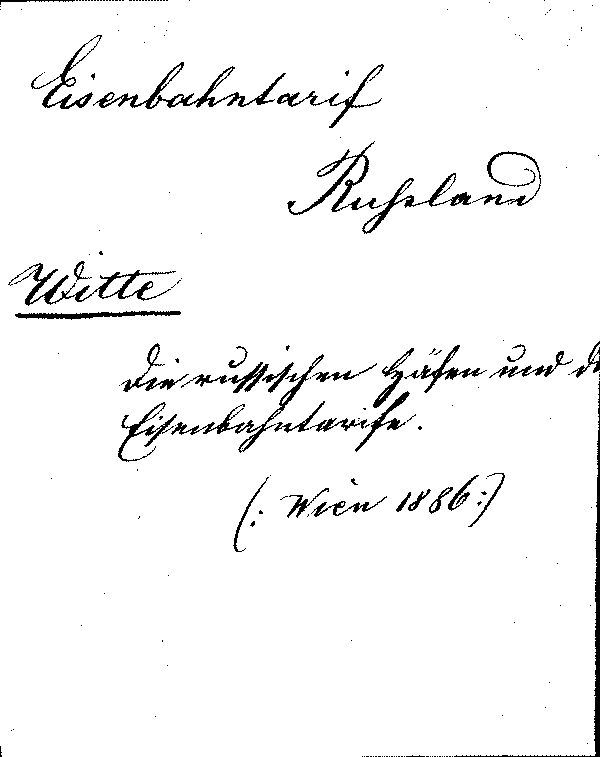 Eisenbahntarif
Russland
Witte
Die russischen Häfen und
Eisenbahntarife.
(: Wien 1886 :)